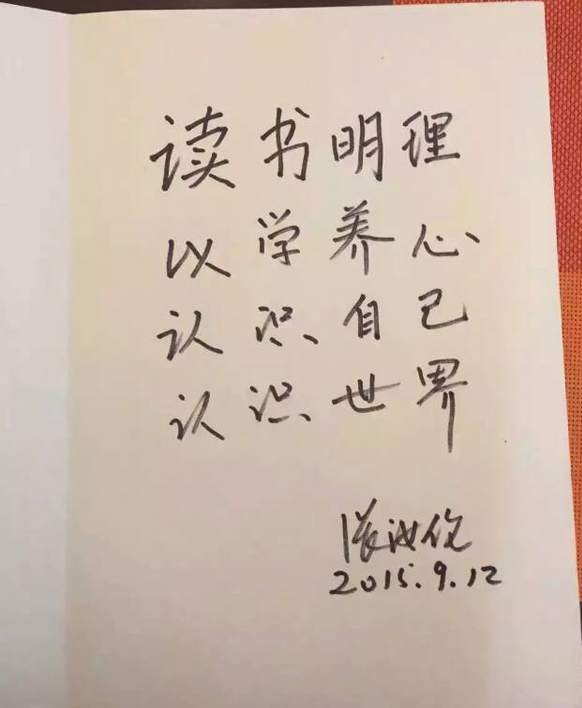 读书明理
以学养心
认识自己
认识世界
张汝伦
2015.9.12